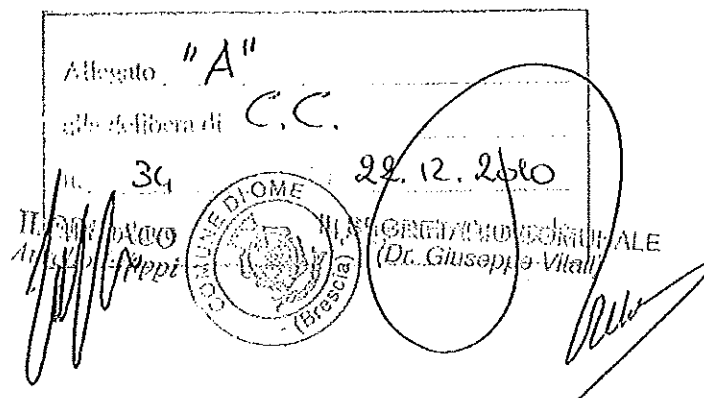 Allegato "A"
alla delibera di C.C.
n. 34 22.12.2010
IL SINDACO IL SEGRETARIO COMUNALE
(Dr. Giuseppe Vitali)
COMUNE DI OME
(Brescia)